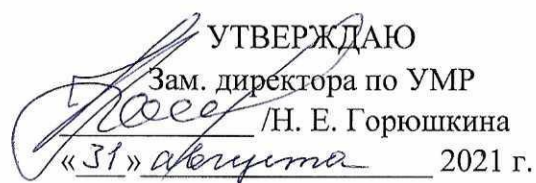 УТВЕРЖДАЮ
Зам. директора по УМР
/Н. Е. Горюшкина
«31» августа 2021 г.